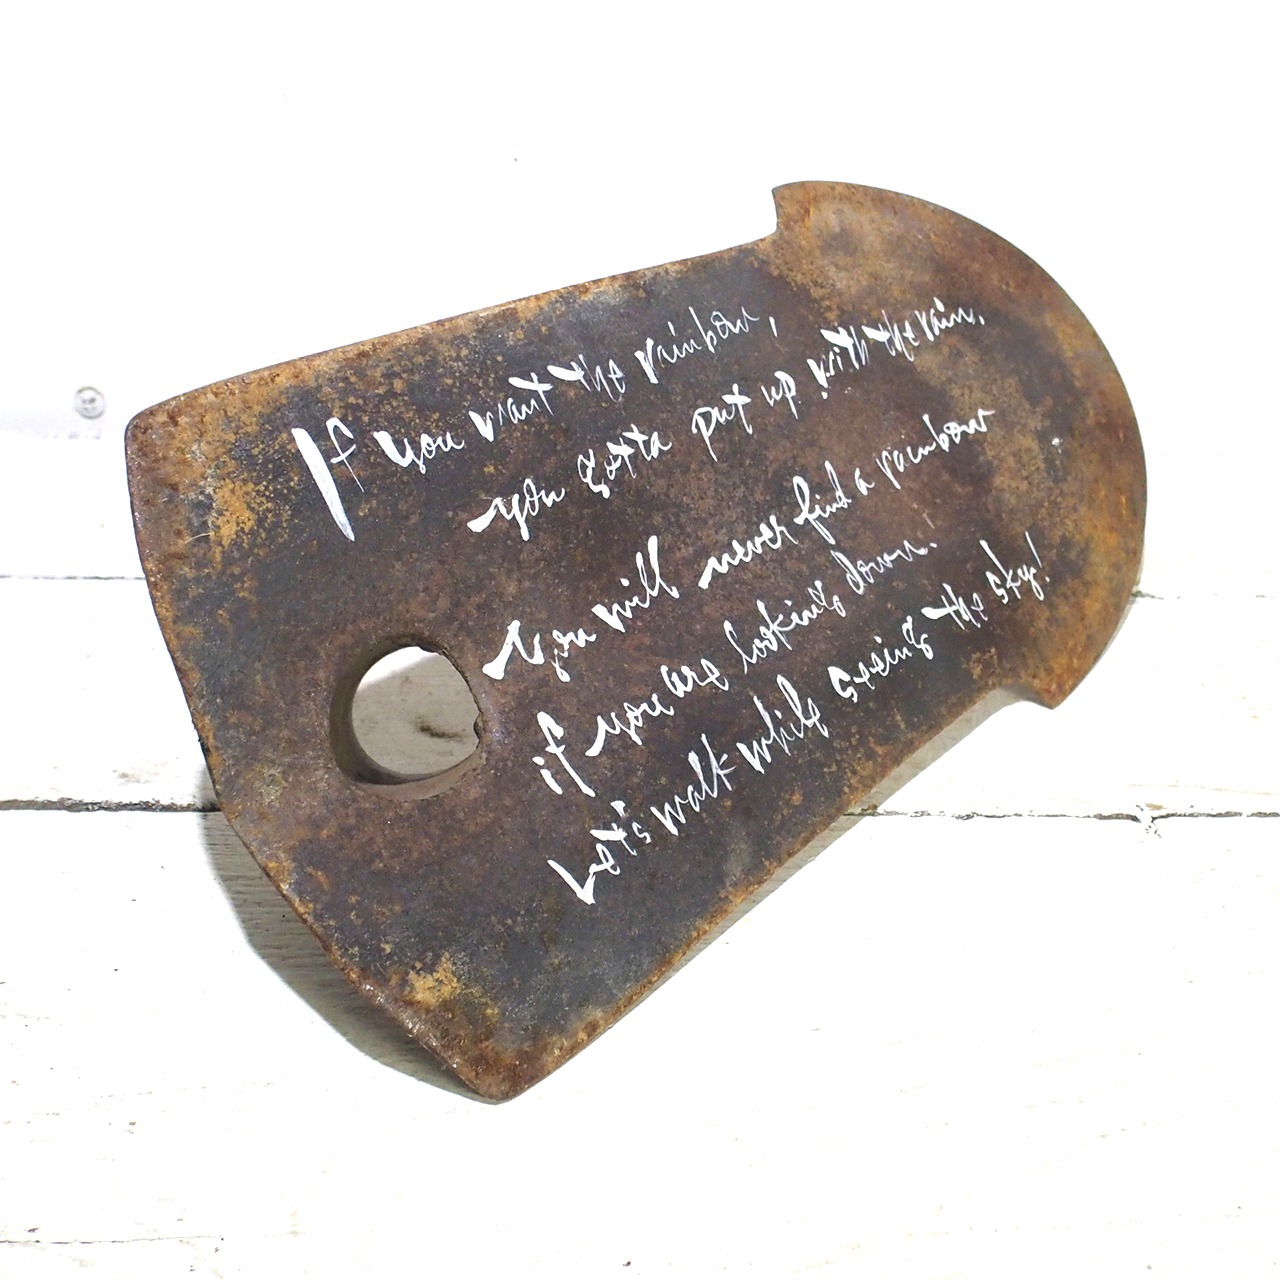 If you want the rainbow,
you gotta put up with the rain.
You will never find a rainbow
if you are looking down!
Let's walk while seeing the sky!